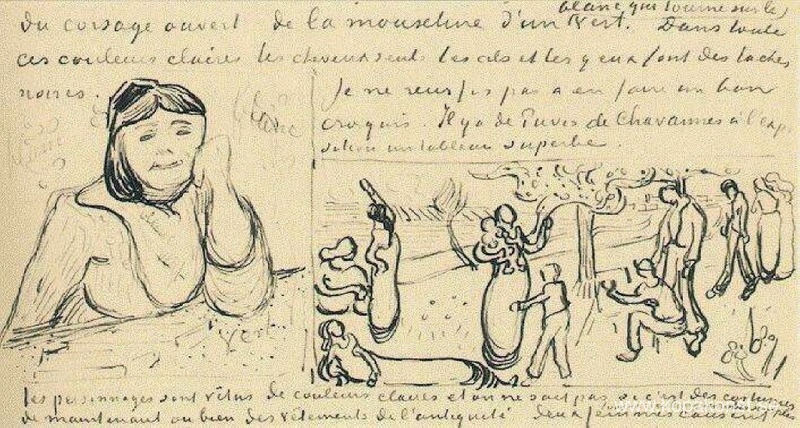 blanc qui tourne sur les
du corsage ouvert de la mousseline d'un vert. Dans toute
ces couleurs claires les cheveux seuls les cils et les yeux font des taches
noires.
Je ne reussis pas a en faire un bon
croquis. Il y a de Puvis de Chavannes a l'expo
sition un tableau superbe.
blanc
vert
les personnages sont vêtus de couleurs claires et on ne sait pas si c'est des costumes
de maintenant ou bien des vêtements de l'antiquité deux femmes causent